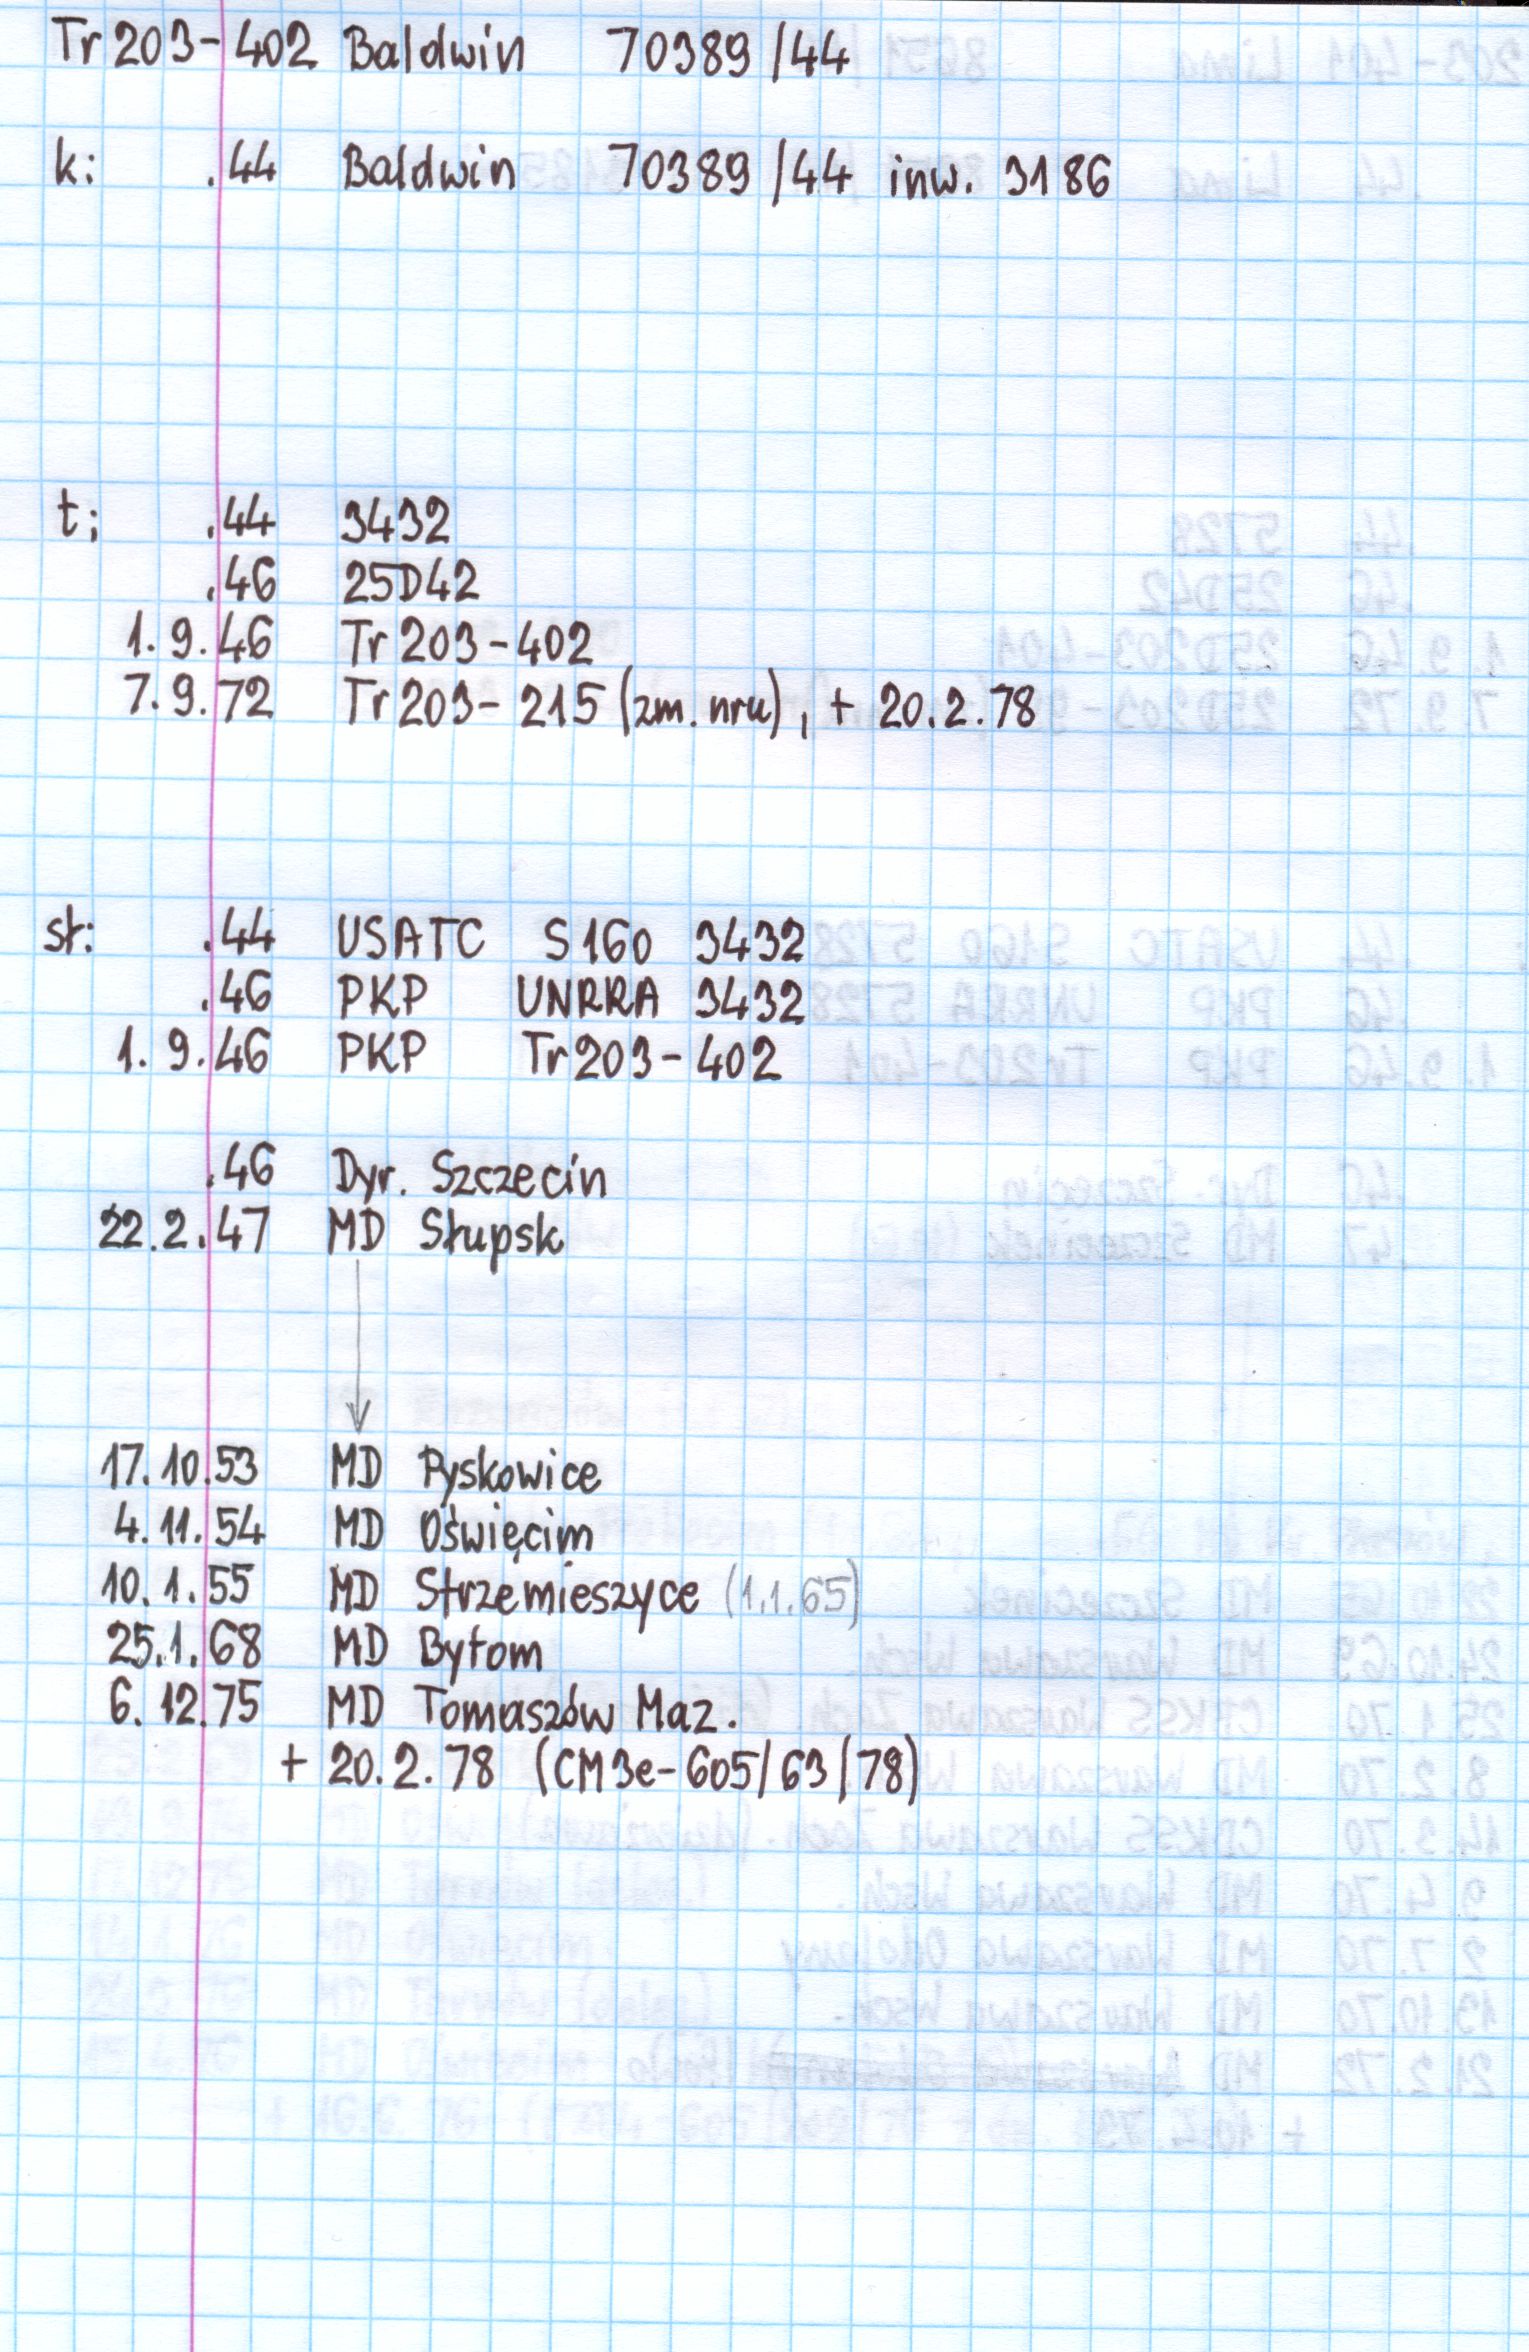 Tr 203-402 Baldwin 70389/44
k: .44 Baldwin 70389/44 inw. 3186
t: .44 3432
.46 25D42
1.9.46 Tr 203-402
7.9.72 Tr 203-215 (zm. nru), + 20.2.78
sł: .44 USATC S160 3432
.46 PKP UNRRA 3432
1.9.46 PKP Tr 203-402
.46 Dyr. Szczecin
22.2.47 MD Słupsk
17.10.53 MD Pyskowice
4.11.54 MD Oświęcim
10.1.55 MD Strzemieszyce (1.1.65)
25.1.68 MD Bytom
6.12.75 MD Tomaszów Maz.
+ 20.2.78 (CM3e-605/63/78)